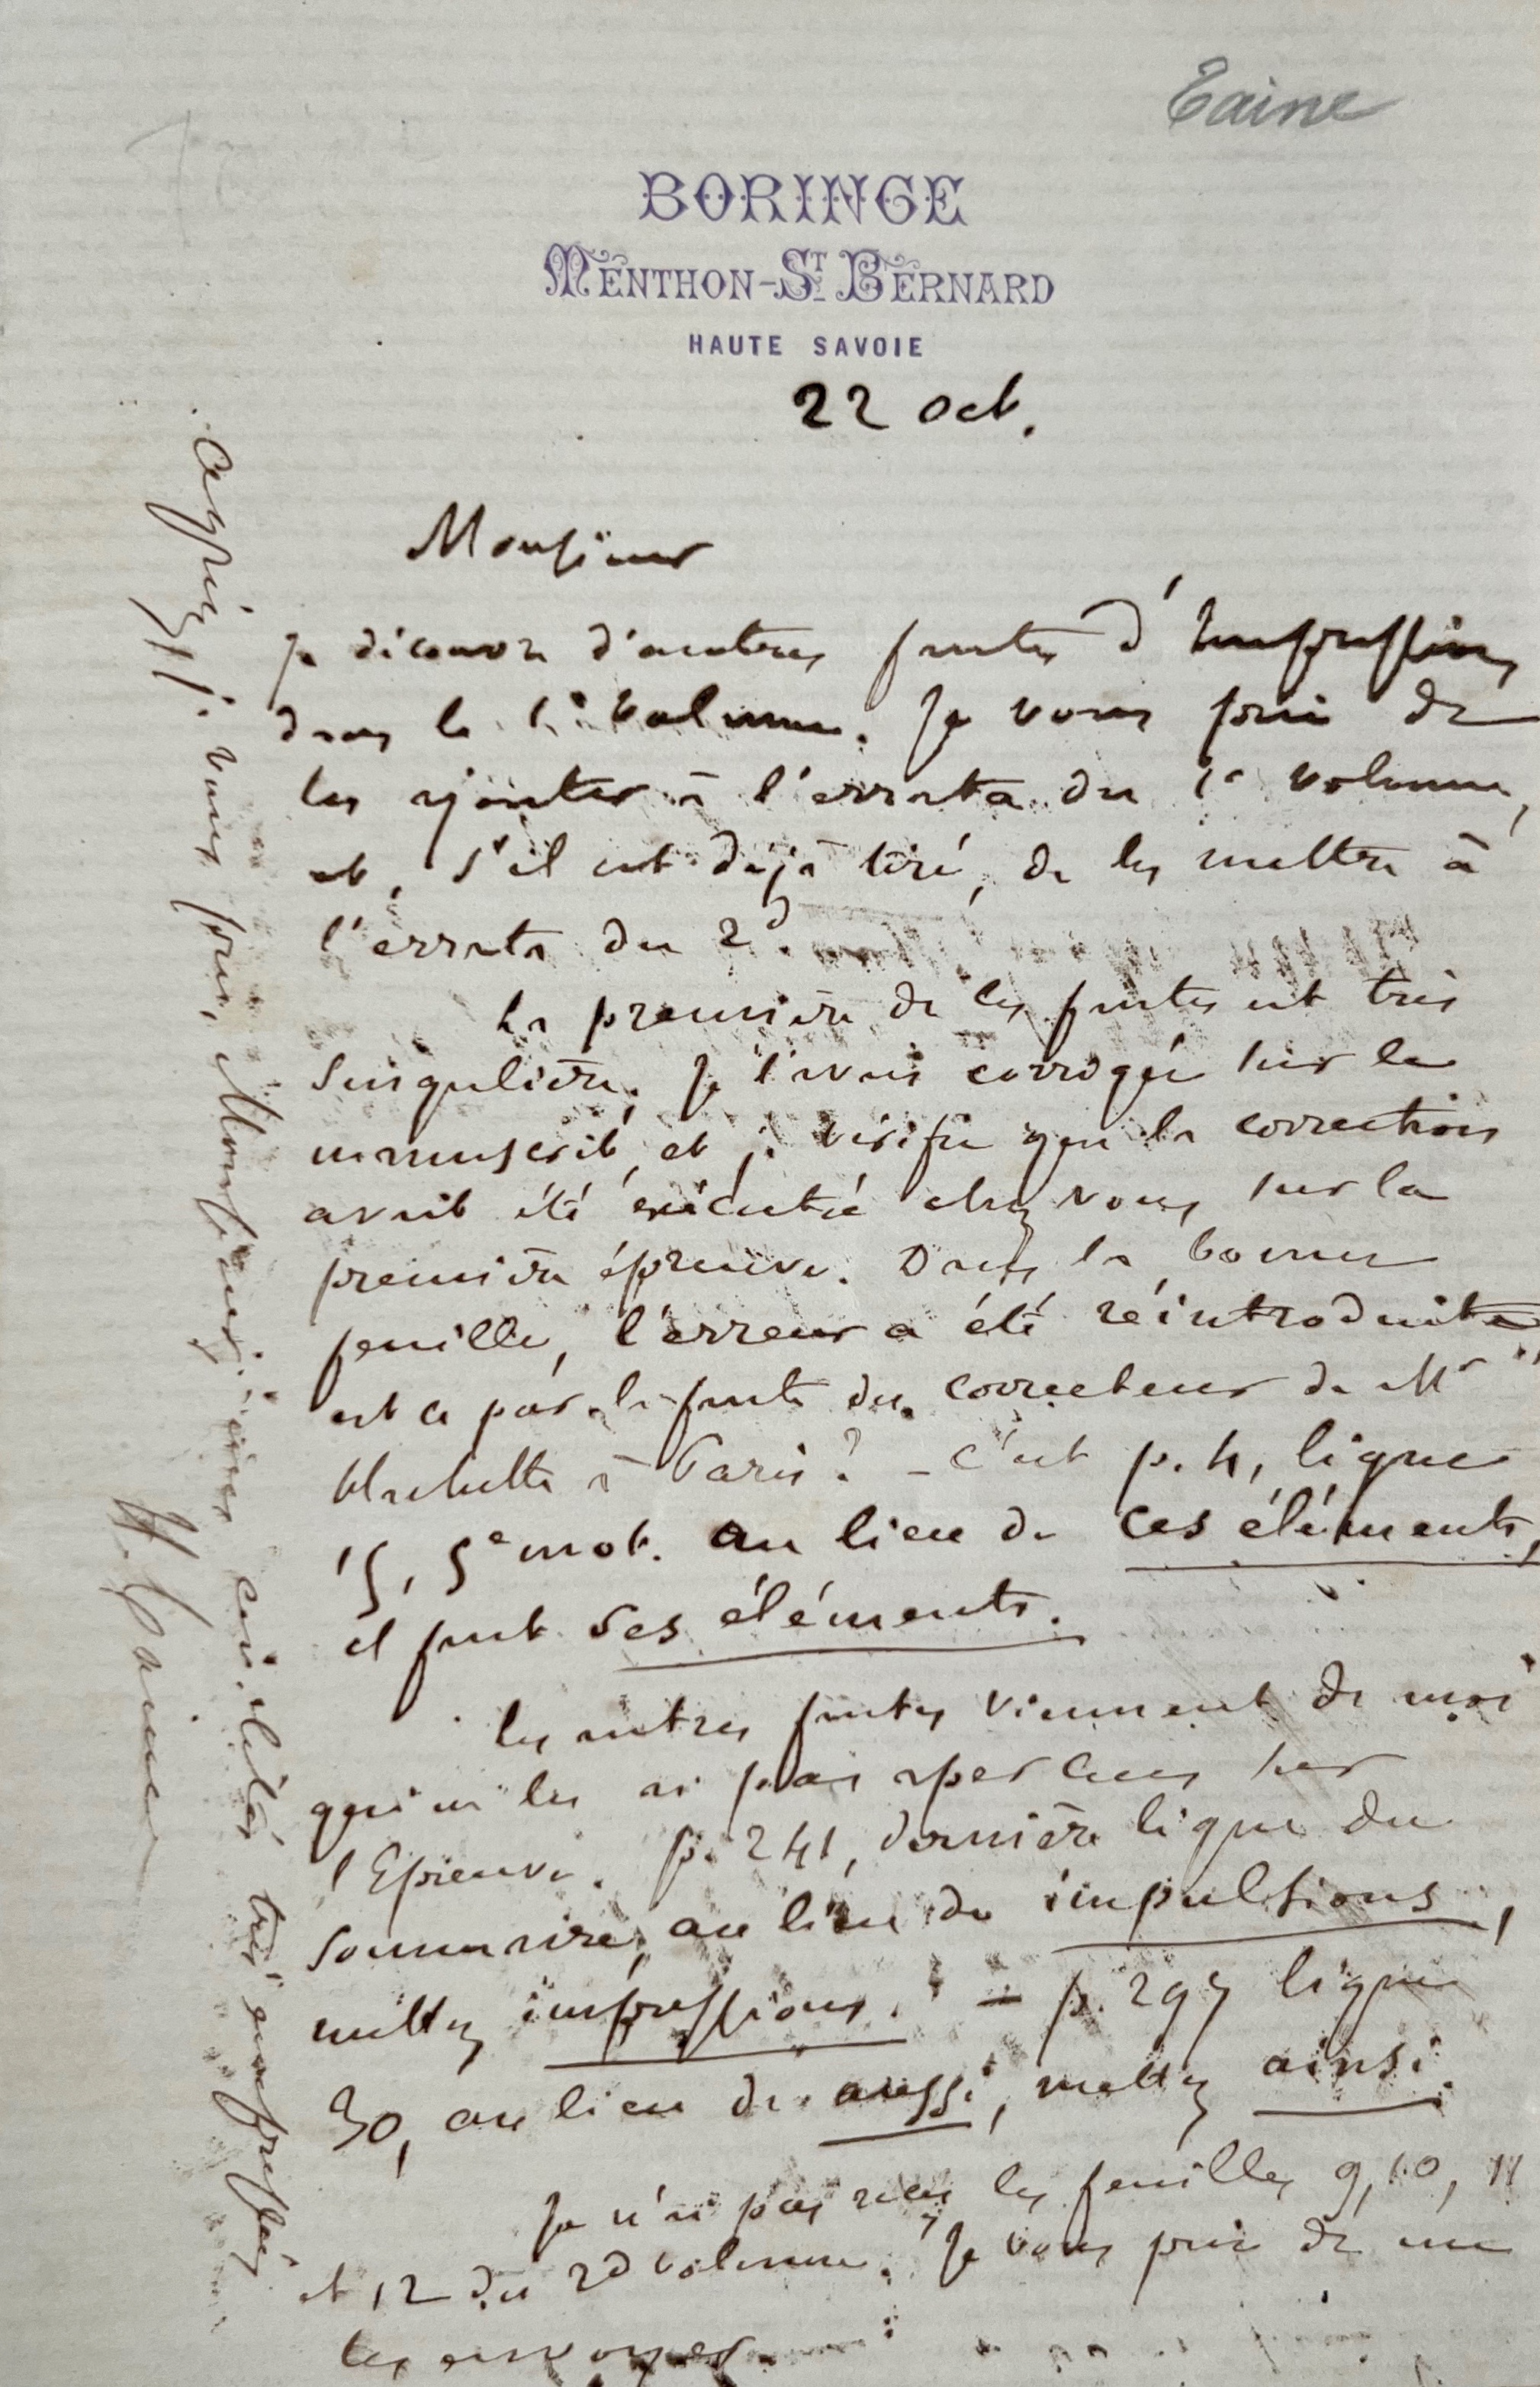 Taine
BORINGE
MENTHON-ST BERNARD
HAUTE SAVOIE
22 oct.
Monsieur
je découvre d'autres fautes d'impression
dans le 1er volume. Je vous prie de
les ajouter à l'errata du 1er volume,
et, s'il est déjà tiré, de les mettre à
l'errata du 2d.
La première de ces fautes est très
singulière; je l'avais corrigée sur le
manuscrit, et je vérifie que la correction
avait été exécutée chez vous sur la
première épreuve. Dans la bonne
feuille, l'erreur a été réintroduite
est ce par la faute du correcteur de Mr
Hachette à Paris? - C'est p. 4, ligne
15, 5e mot. au lieu de ces éléments,
il faut ses éléments.
les autres fautes viennent de moi
qui ne les ai pas aperçues sur
l'Epreuve. p. 241, dernière ligne du
sommaire, au lieu de impulsions,
mettez impressions. - p. 297 ligne
30, au lieu de aussi, mettez ainsi.
Je n'ai pas reçu les feuilles 9, 10, 11
et 12 du 2d volume. Je vous prie de me
les envoyer.
Agréez je vous prie, Monsieur, mes civilités très empressées
H. Taine